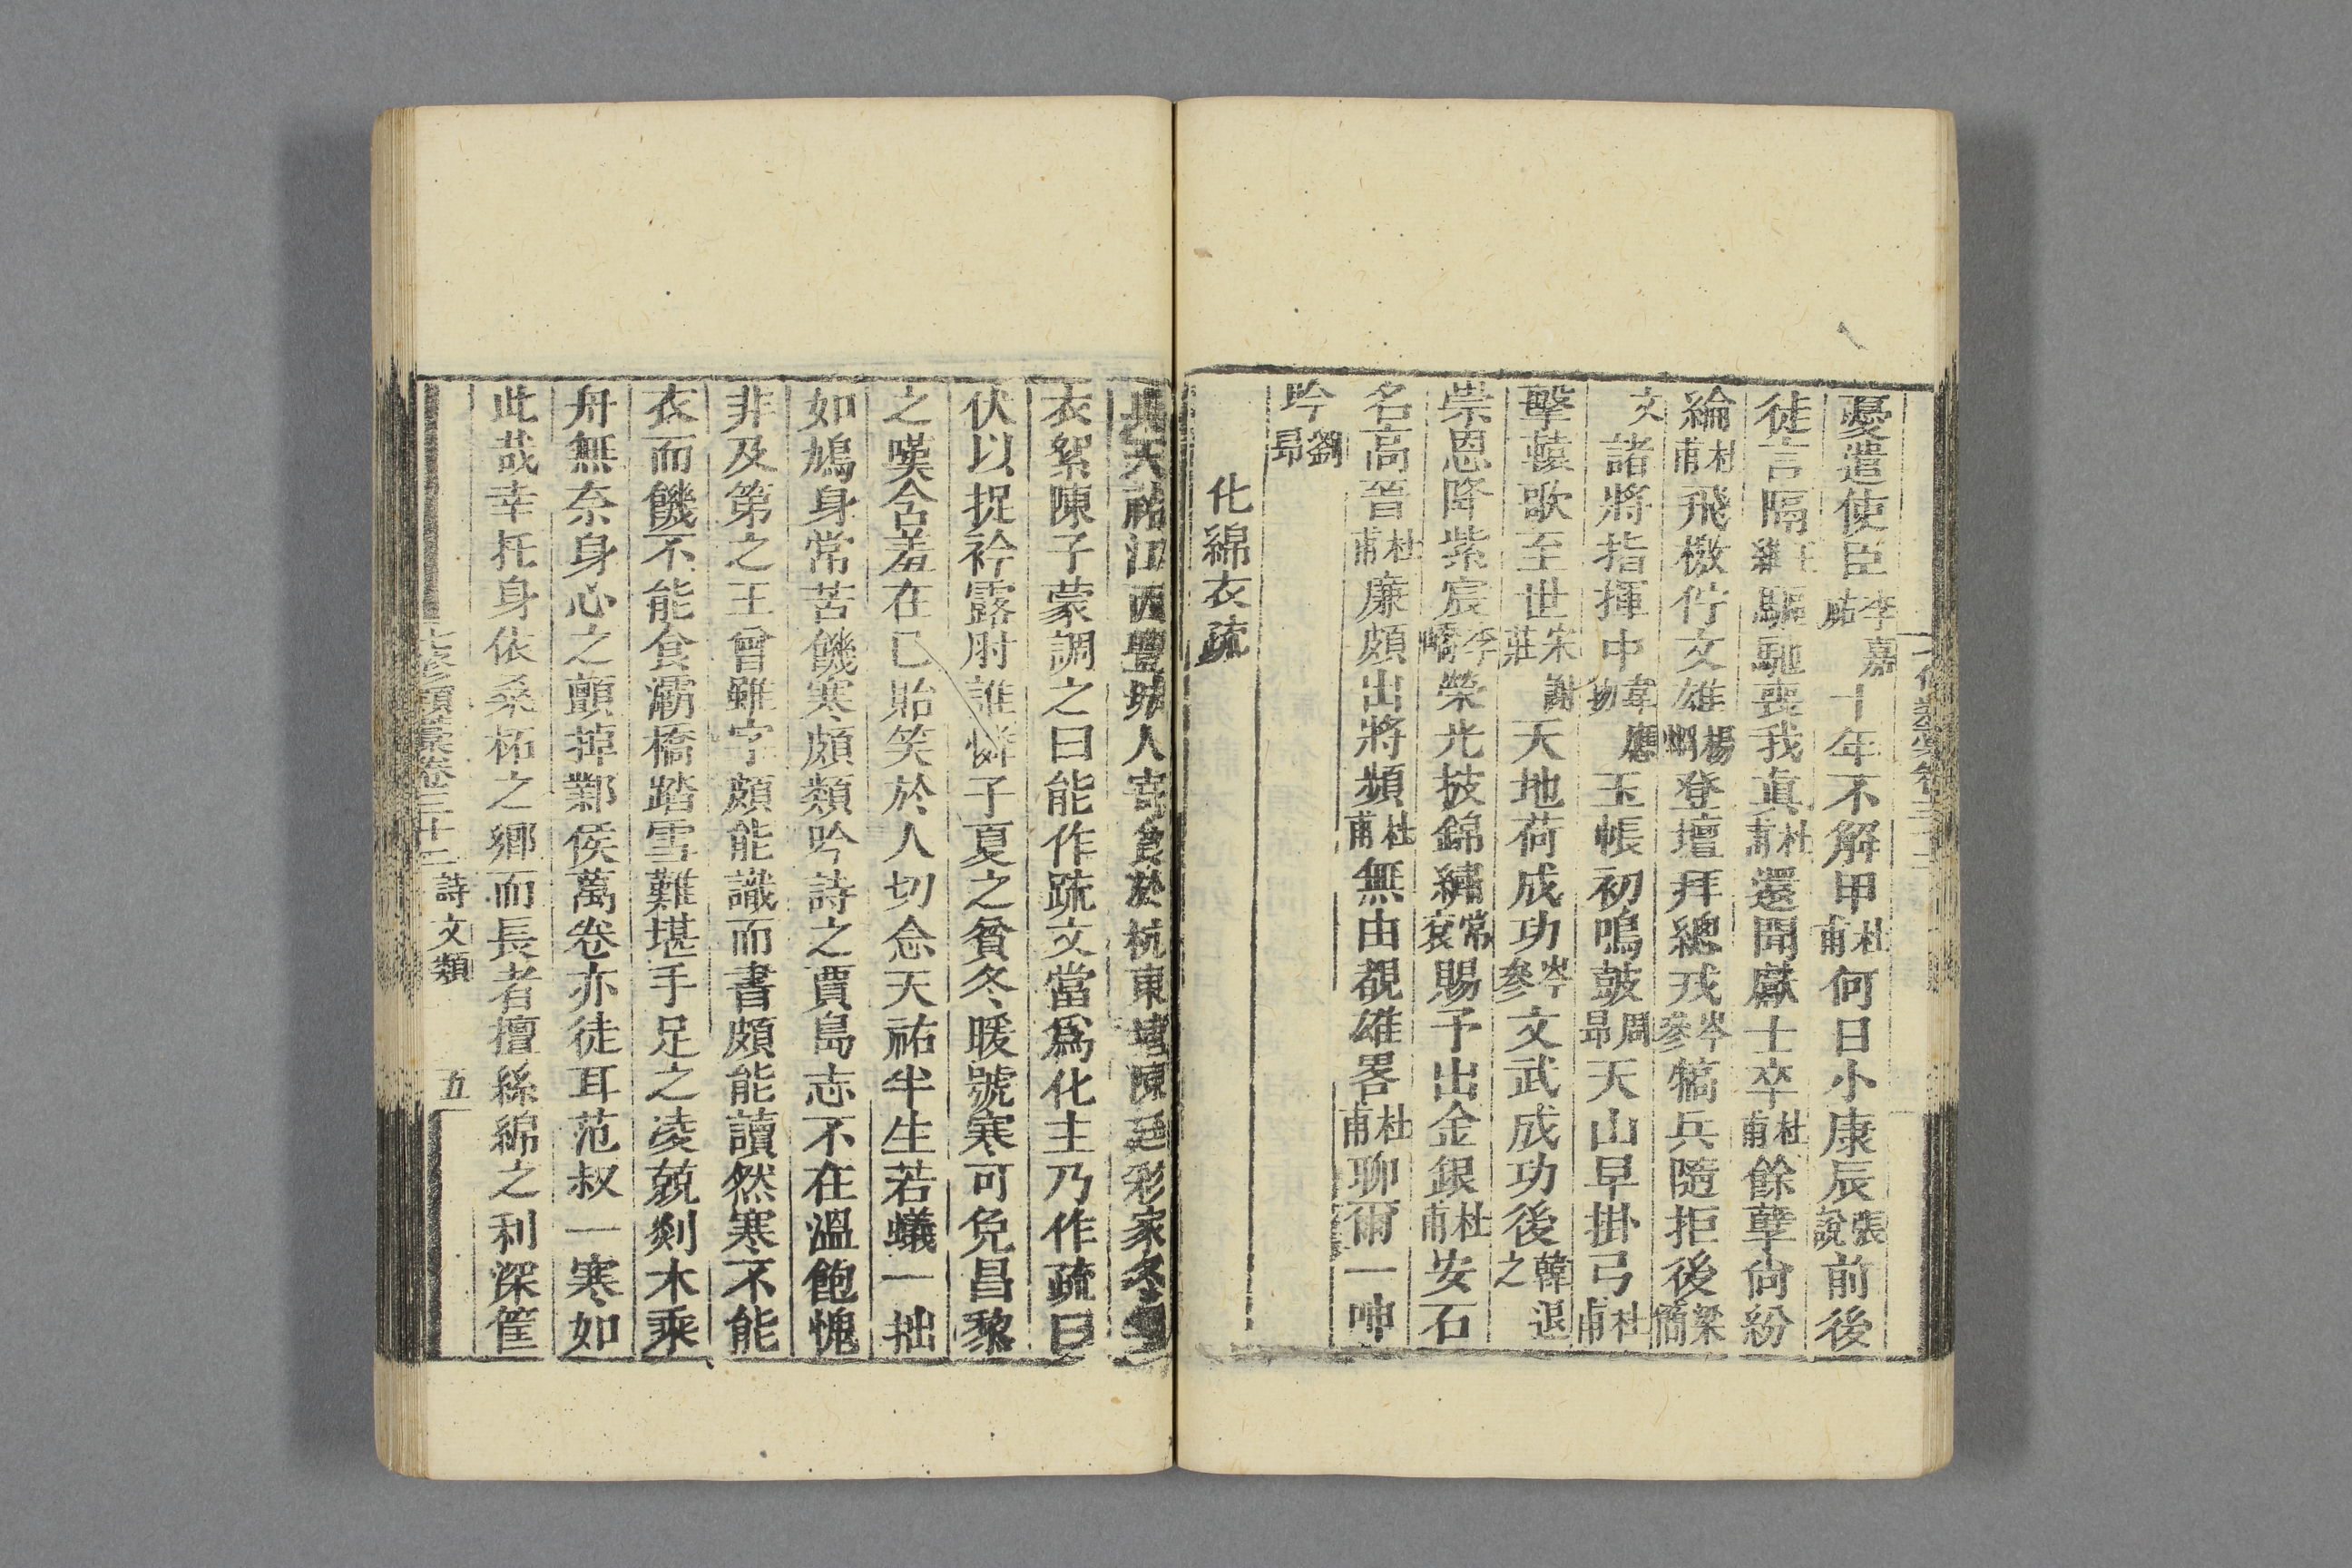 憂遣使臣李嘉祐十年不解甲杜甫何日小康辰張說前後
徒言隔王維驅馳喪我眞杜甫還聞獻士卒杜甫餘孽尙紛
綸杜甫飛檄佇文雄楊炯登壇拜總戎岑參犒兵隨拒後梁簡
文諸將指揮中韋應物玉帳初鳴鼓周昂天山早掛弓杜甫
擊轅歌至世宋謝莊天地荷成功岑參文武成功後韓退之
崇恩降紫宸李嶠榮光披錦繡常袞賜予出金銀杜甫安石
名高晉杜甫廉頗出將頻杜甫無由覩雄畧杜甫聊爾一呻
吟劉昂
化綿衣疏
天祐江西豐城人寄食於杭東陳廷彩家冬
衣絮陳子蒙調之曰能作疏文當爲化主乃作疏曰
伏以捉衿露肘誰憐子夏之貧冬暖號寒可免昌黎
之嘆含羞在已貽笑於人切念天祐半生若蟻一拙
如鳩身常苦饑寒頗類吟詩之賈島志不在溫飽愧
非及第之王曾雖字頗能識而書頗能讀然寒不能
衣而饑不能食灞橋踏雪難堪手足之凌兢剡木乘
舟無奈身心之顫掉鄴侯萬卷亦徒耳范叔一寒如
此哉幸托身依桑柘之鄉而長者擅絲綿之利深筐
七修類藁卷三十二 詩文類 五